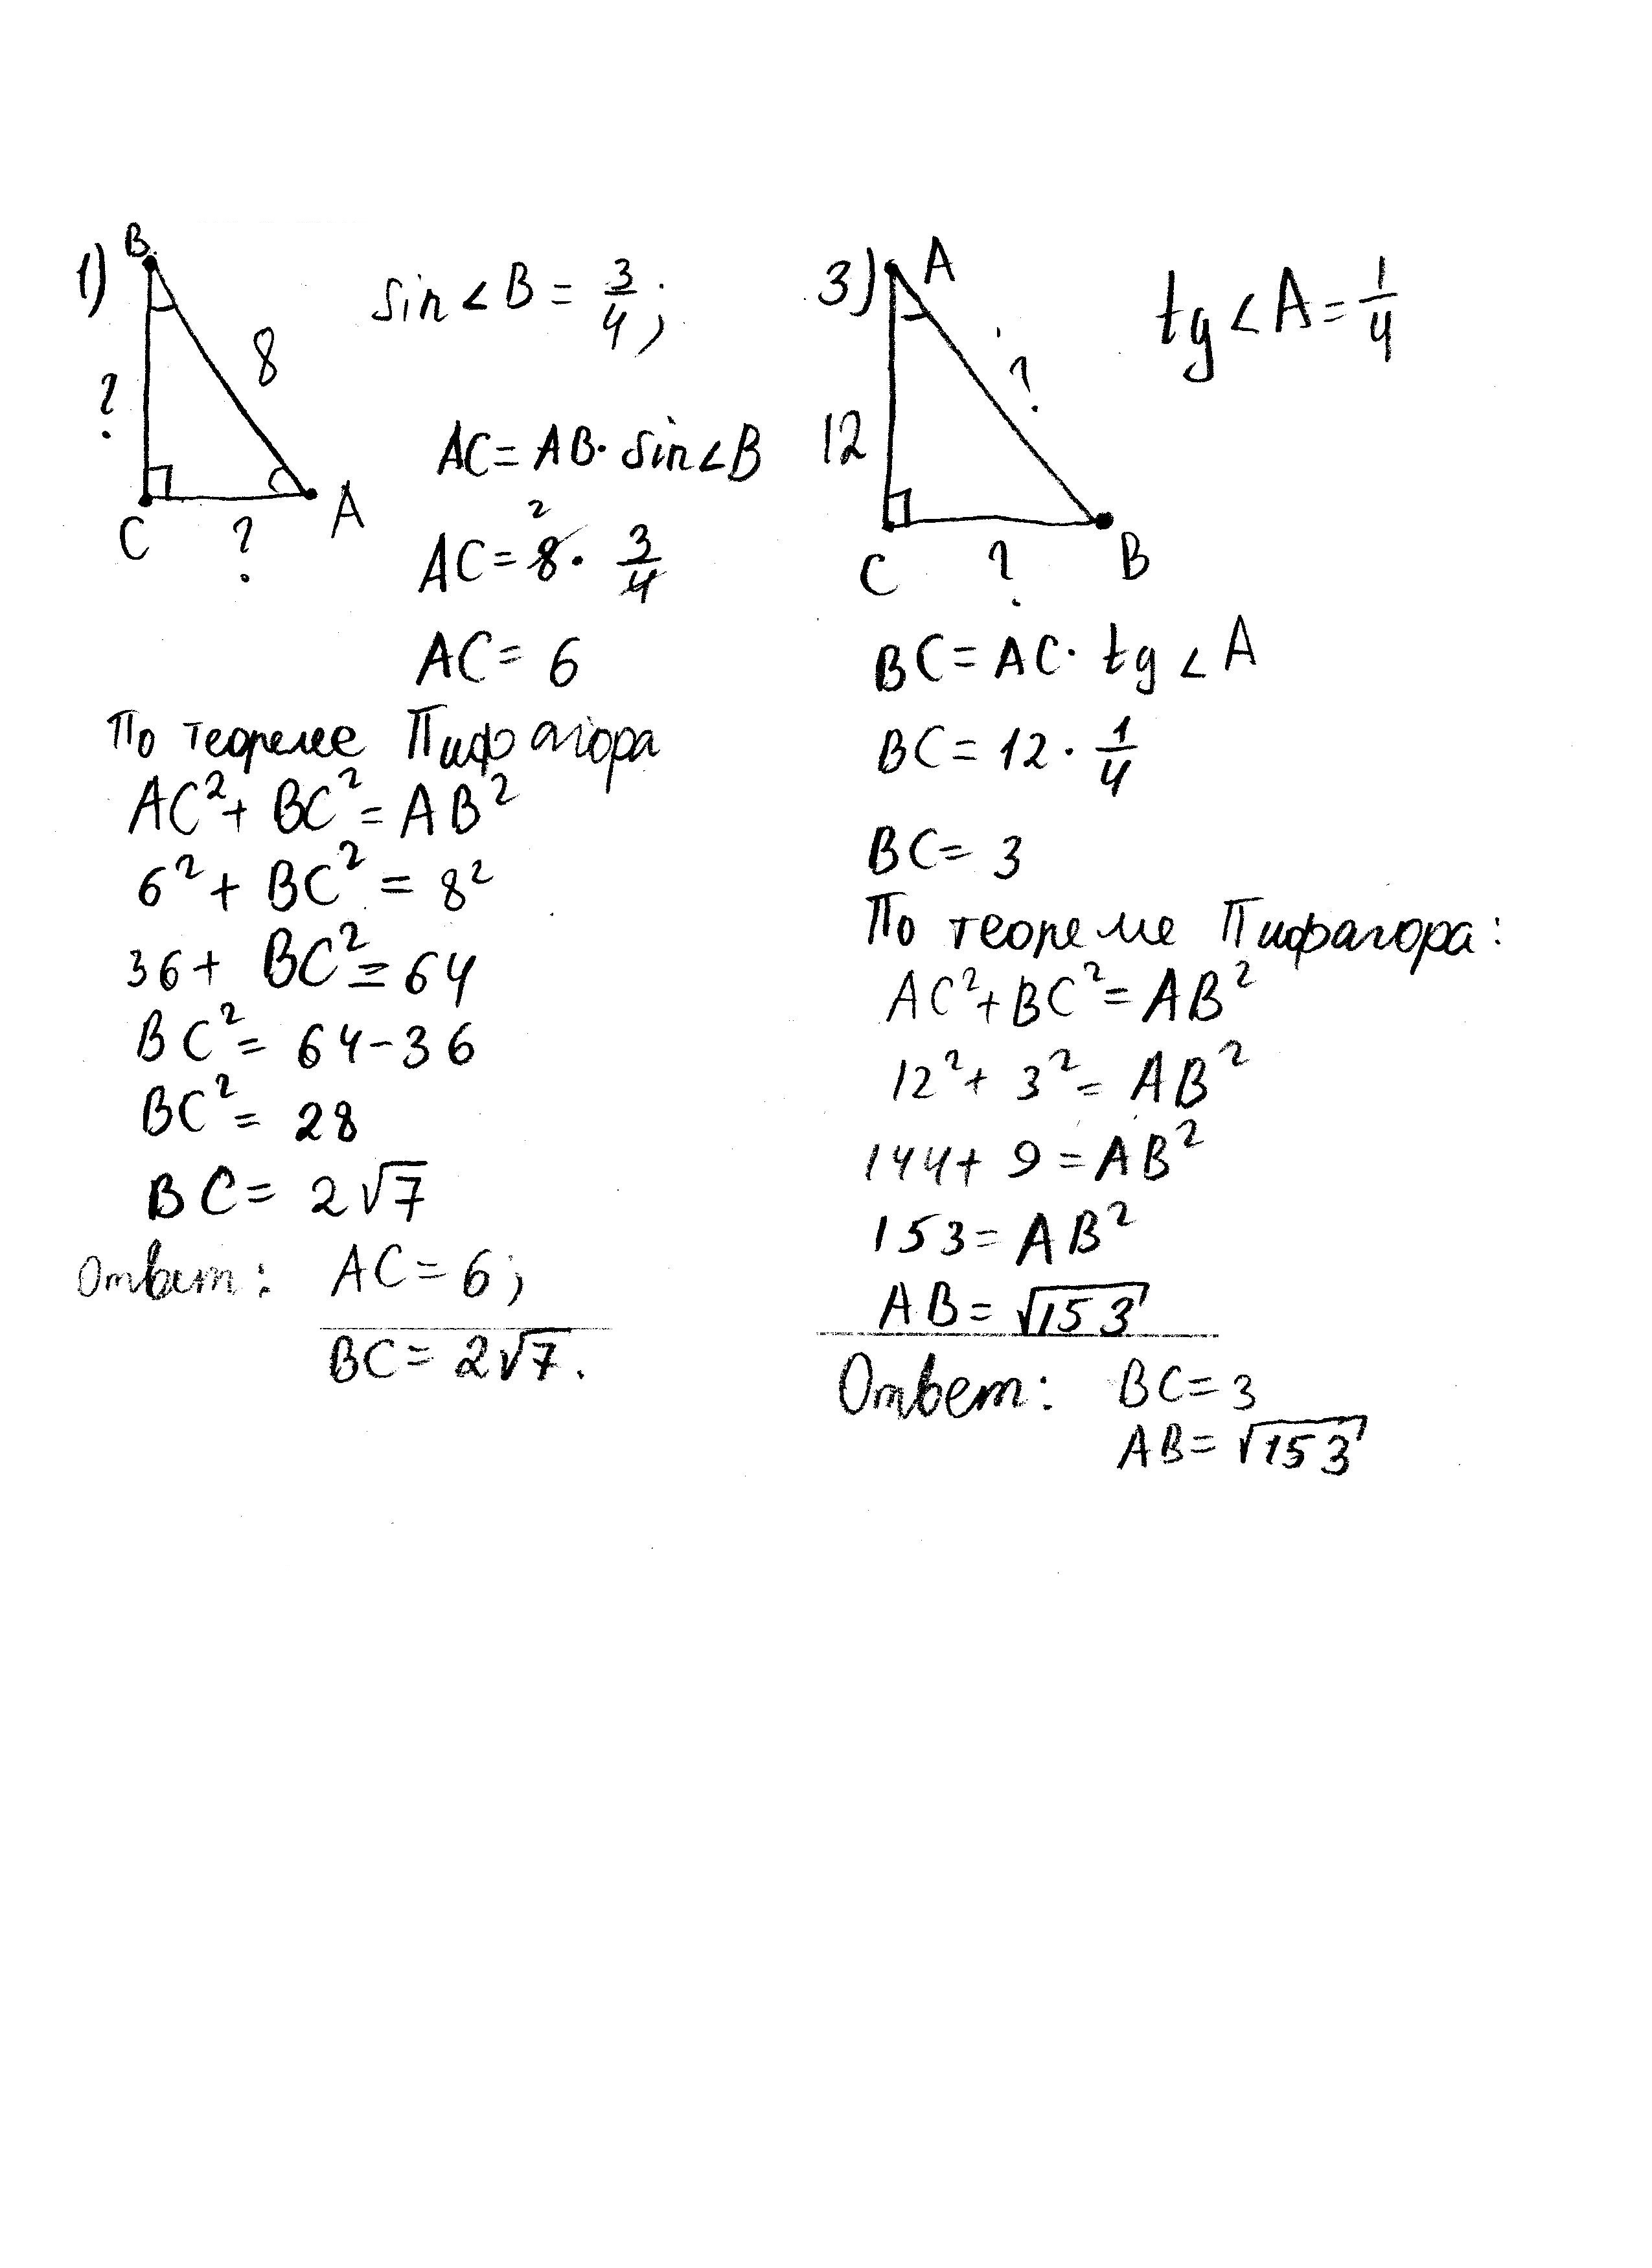 1)
B
8
?
C
?
A
sin∠B = 3/4;
AC = AB · sin∠B
2
AC = 8 · 3/4
AC = 6
По теореме Пифагора
AC² + BC² = AB²
6² + BC² = 8²
36 + BC² = 64
BC² = 64 - 36
BC² = 28
BC = 2√7
Ответ: AC = 6;
BC = 2√7.
3)
A
?
12
C
?
B
tg∠A = 1/4
BC = AC · tg∠A
BC = 12 · 1/4
BC = 3
По теореме Пифагора:
AC² + BC² = AB²
12² + 3² = AB²
144 + 9 = AB²
153 = AB²
AB = √153
Ответ: BC = 3
AB = √153